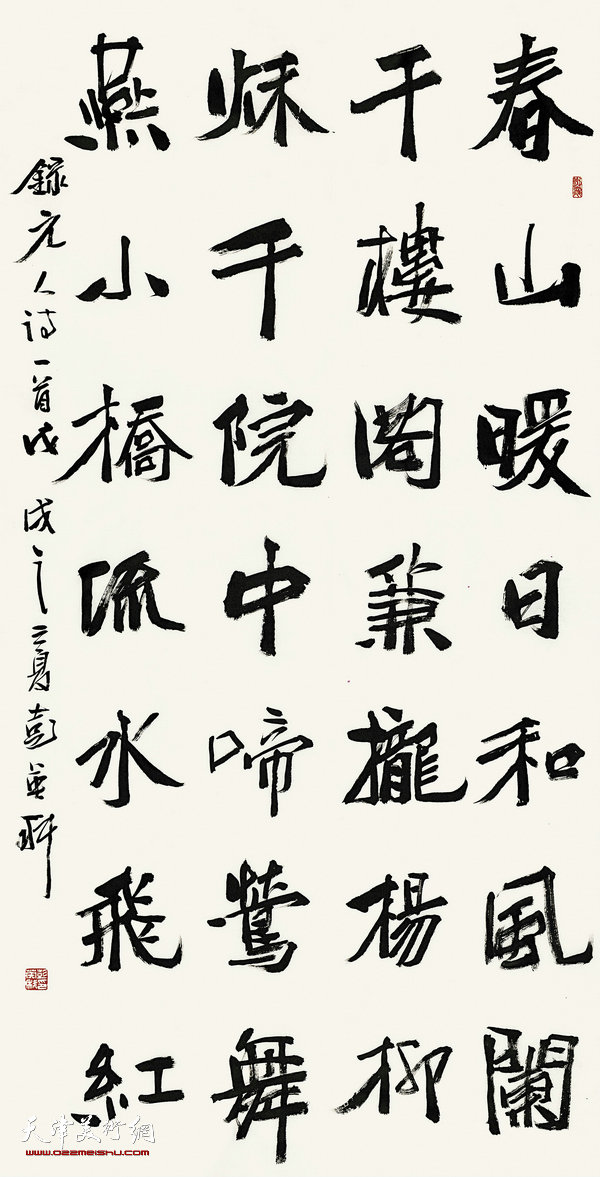 春山暖日和風闌
干樓閣簾攏楊柳
秌千院中啼鶯舞
燕小橋流水飛紅
錄元人詩一首戊戌之夏彭英科
天津美術網
www.022meishu.com